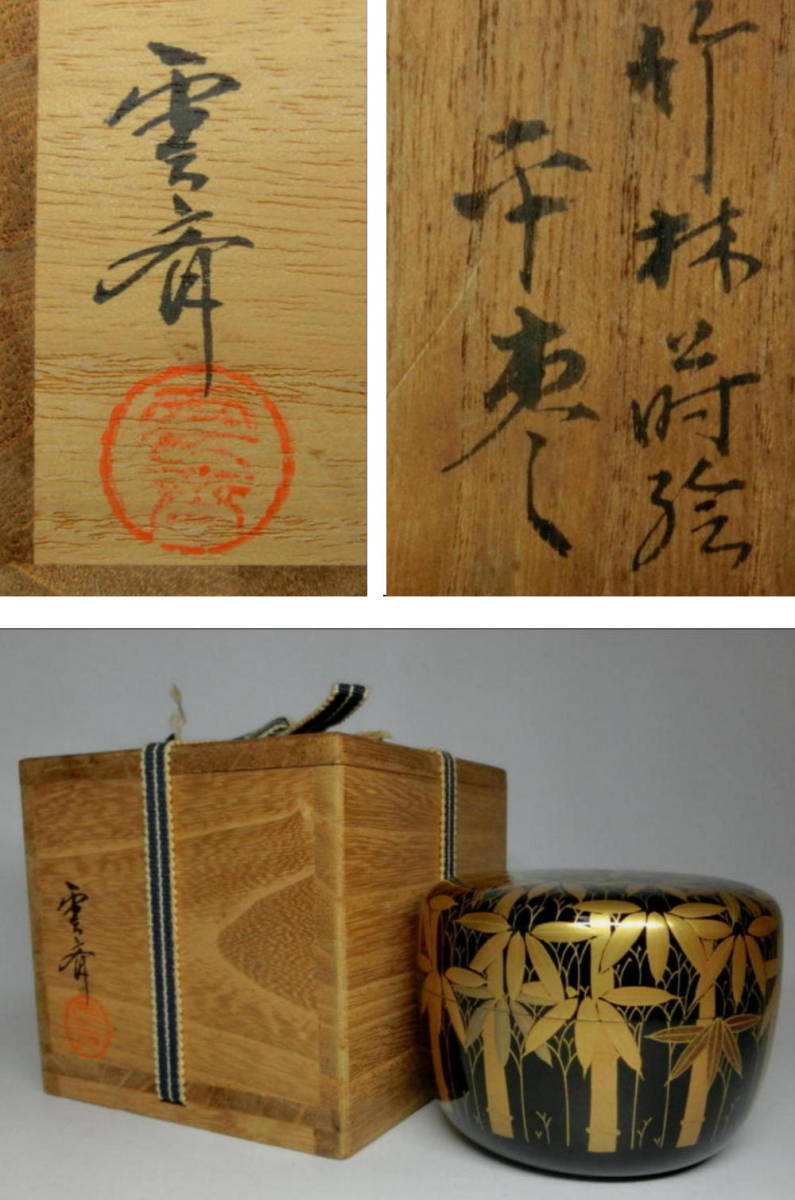 雲斎
竹林蒔絵
平棗
雲斎